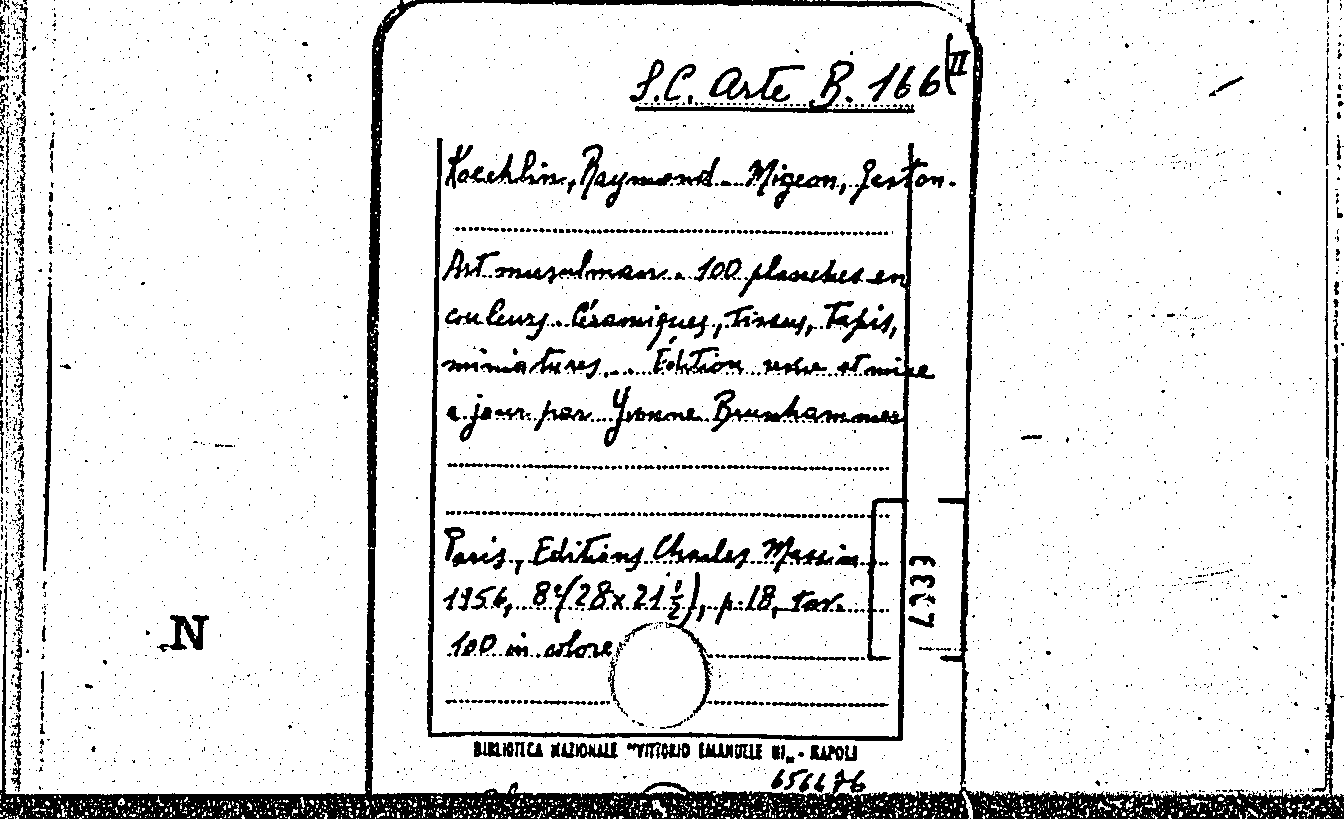 S.C. Arte B. 166 (II
Koechlin, Raymond - Migeon, Gaston.
Art musulman. 100 planches en
couleurs. Céramiques, Tissus, Tapis,
miniatures. . Édition revue et mise
a jour par Yvonne Brunhammer
Paris, Editions Charles Massin
1956, 8° (28 x 21 ½), p. 18, tav.
100 in colore
N
BIBLIOTECA NAZIONALE "VITTORIO EMANUELE III„ - NAPOLI
656676